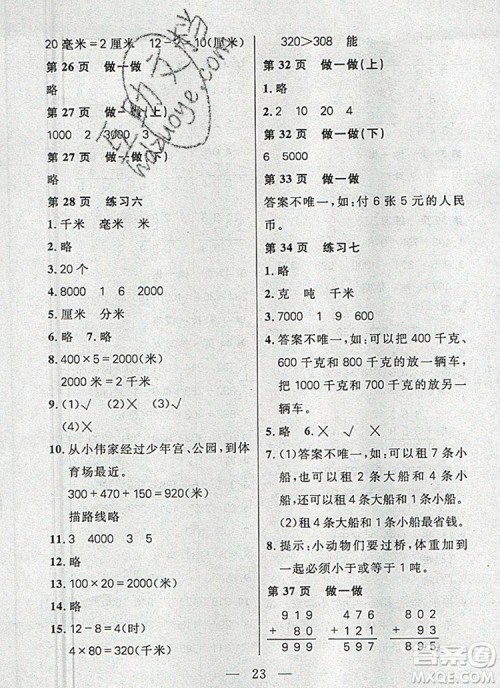 20 毫米=2 厘米　12-2=10(厘米)
第 26 页　做一做
略
第 27 页　做一做(上)
1000　2　3000　3
第 27 页　做一做(下)
略
第 28 页　练习六
1. 千米　毫米　米
2. 略
3. 20 个
4. 8000　1　6　2000
5. 厘米　分米
6. 略　7. 略
8. 400×5=2000(米)
2000 米=2 千米
9. (1)√　(2)×
10. 从小伟家经过少年宫、公园,到体
育场最近。
300+470+150=920(米)
描路线略
11. 3　4000　3　5
12. 略
13. 100×20=2000(米)
14. 略
15. 12-8=4(时)
4×80=320(千米)
320>308　能
第 32 页　做一做(上)
1. 略
2. 2　10　20　4
第 32 页　做一做(下)
6　5000
第 33 页　做一做
答案不唯一,如:付 6 张 5 元的人民
币。
第 34 页　练习七
1. 略
2. 克　吨　千米
3. 7000　1　9　6000
4. 答案不唯一,如:可以把 400 千克、
600 千克和 800 千克的放一辆车,
把 1000 千克和 700 千克的放另一
辆车。
5. 略　6. ×　√　√
7. (1)答案不唯一,如:可以租 7 条小
船,也可以租 2 条大船和 4 条小
船,还可以租 4 条大船和 1 条小船。
(2)租 4 条大船和 1 条小船最省钱。
8. 提示:小动物们要过桥,体重加到
一起必须小于或等于 1 吨。
第 37 页　做一做
919　476　802
+ 80　+121　+ 93
999　597　895
23
互助文档
hdzuoye.com
作业帮
MXQE.COM